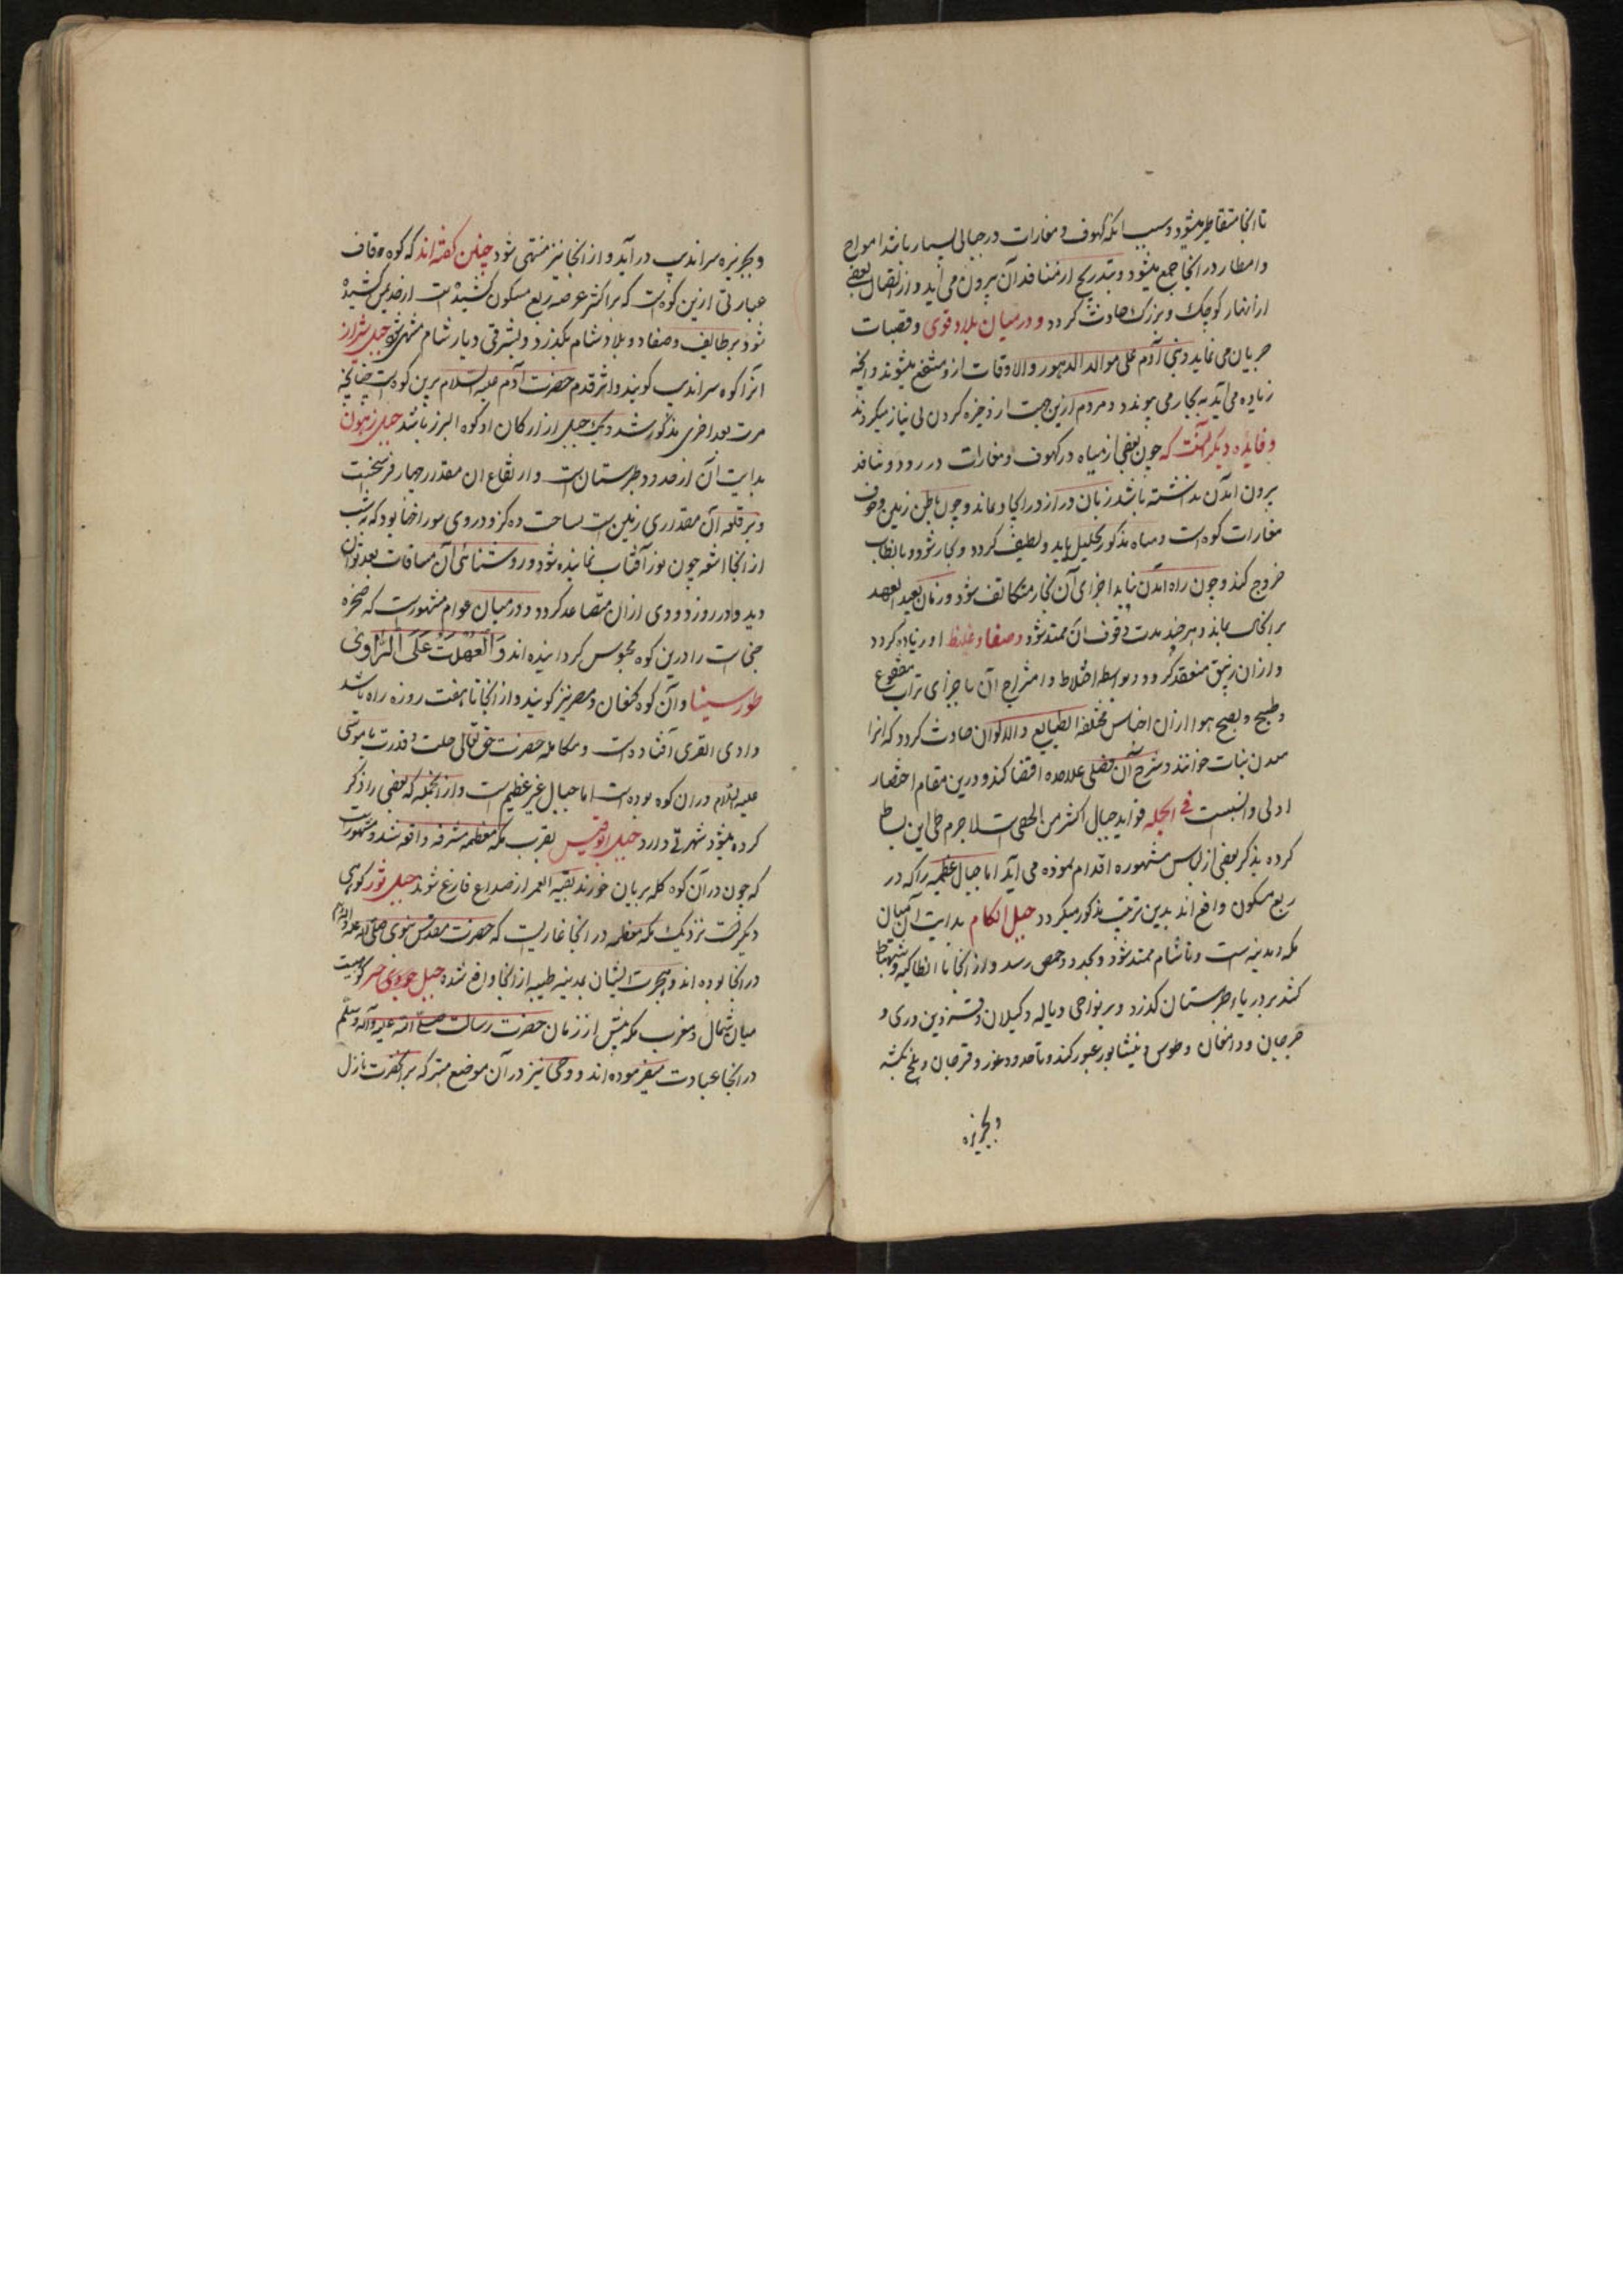 تا انجا متقاطر میشود و سبب انکه کهوف و مغارات در جبالی بسیار باشد امواج
و امطار در انجا جمع میشود و بتدریج از منافذ آن بیرون می آید و از اتصال بعضی
از انهار کوچک و بزرک حادث کردد و درمیان بلاد قوی و قصبات
جریان می نماید و بنی آدم علی موالد الدهور و الاوقات ازو منتفع میشوند و انچه
زیاده می آید به بحار می پیوندد و مردم ازین جهت از ذخیره کردن بی نیاز میکردند
و فایده دیکر آنست که چون بعضی از میاه در کهوف و مغارات در رود و منافذ
برون امدن نداشته باشد زمان دراز در انجا بماند و چون باطن زمین و جوف
مغارات کوه است و میاه مذکور تحلیل یابد و لطیف کردد و بخار شود و بانطلب
خروج کند و چون راه امدن نیابد اجزای آن بخار متکاثف شود و زمان بعید العهد
بر انحال بماند و هر چند مدت وقوف آن ممتد شود و صفا و غلیظ او زیاده کردد
و از ان زیبق منعقد کردد و بواسطه اختلاط و امتزاج آن با اجزای تراب
و طبخ و نضج هوا از ان اجناس مختلفه الطبایع و الالوان حادث کردد که انرا
معدن نبات خوانند و شرح آن فصلی علاحده اقتضا کند و درین مقام اختصار
اولی و انسبست فی الجمله فواید جبال اکثر من الحصی است لاجرم طی این بساط
کرده بذکر بعضی از جبال مشهوره اقدام نموده می آید اما جبال عظیمه را که در
ربع مسکون واقع اند بدین ترتیب مذکور میکردد جبل الکام بدایت آن میان
مکه و مدینه است و تا شام ممتد شود و بحدود حمص رسد و از انجا با انطاکیه و
کشد بر دریاء طبرستان کذرد و بر نواحی دیاله و کیلان و قزوین و ری و
جرجان و دامغان و طوس و نیشابور عبور کند و تا حدود غور و غرجان و بلخ بکشد
و بجزیره
و بجزیره سراندیب در آید و از انجا نیز منتهی شود چنین کفته اند که کوه قاف
عبارتی ازین کوه است که بر اکثر عرصه ربع مسکون کشیده است از حد یمن کشیده
شود بر طایف و صفا و بلاد شام بکذرد و بشرقی دیار شام منتهی شود
انرا کوه سراندیب کویند و اثر قدم حضرت آدم علیه السلام برین کوه است چنانچه
مرت بعد اخری مذکور شد و یک جبل از ارکان او کوه البرز باشد جبل
بدایت آن از حدود طبرستان است و ارتفاع ان مقدار چهار فرسخست
و بر قلهٔ آن مقداری زمین است بمساحت ده کز و در وی سوراخها بود که بشب
از انجا اشعه چون نور آفتاب نماینده شود و روشنائی آن مسافات بعد توان
دید و در روز دودی از ان متصاعد کردد و درمیان عوام مشهورست که صخره
جنیات را درین کوه محبوس کردانیده اند وَ العُهْدَتُ عَلَی الرَّاوی
طور سینا و آن کوه کنعان و مصر نیز کویند و از انجا تا هفت روزه راه باشد
وادی القری آفتاده است و مکالمه حضرت حق تعالی جلت قدرته با موسی
علیه السلام در ان کوه بوده است اما جبال غیر عظیم است و از انجمله که بعضی را ذکر
کرده میشود شهرتی دارد جبل ابوقبیس بقرب مکه معظمه مشرفه واقع شده و مشهورست
که چون در آن کوه کله بریان خورند بقیه العمر از صداع فارغ شوند جبل ثور کوهی
دیکرست نزدیک مکه معظمه در انجا غاریست که حضرت مقدس نبوی صلی الله علیه و اله
در انجا بوده اند و هجرت ایشان بمدینه طیبه از انجا واقع شده جبل حری کوهیست
میان شمال و مغرب مکه پیش از زمان حضرت رسالت صلی الله علیه وآله وسلم
در انجا عبادت میفرموده اند و وحی نیز در آن موضع متبرکه بر انحضرت نازل